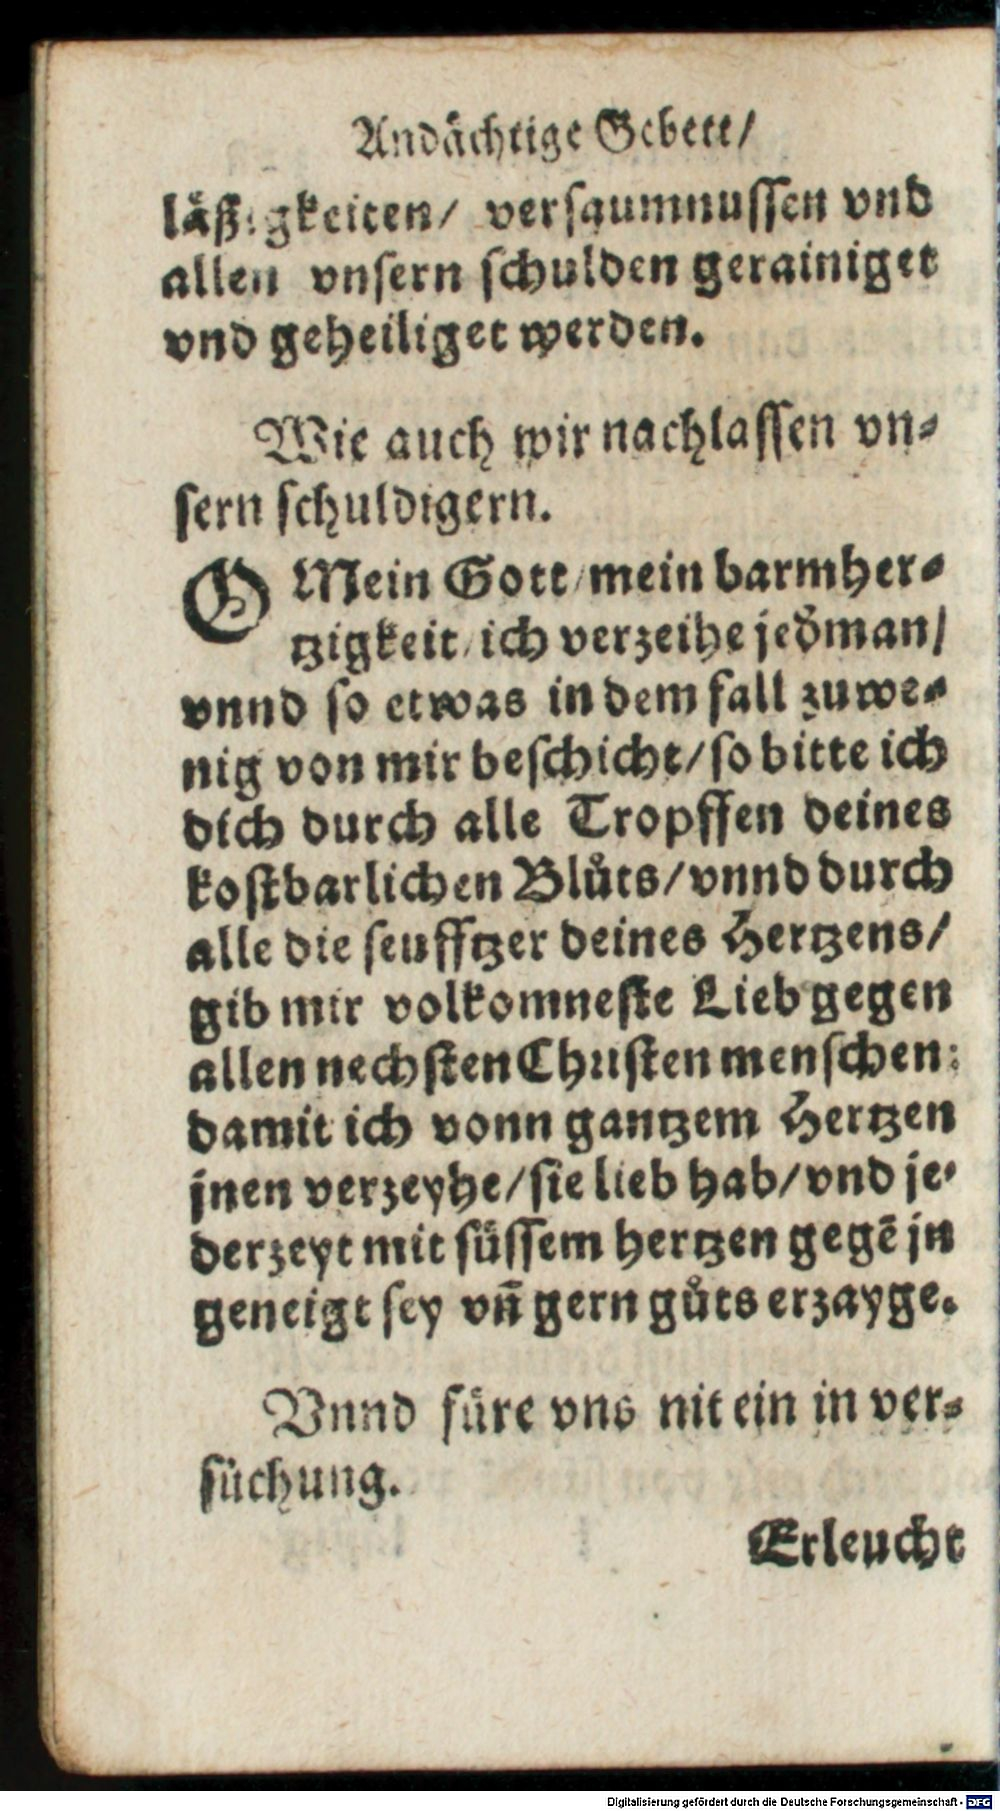 Andächtige Gebett/
läßigkeiten/ versaumnussen vnd
allen vnsern schulden gerainiget
vnd geheiliget werden.
Wie auch wir nachlassen vn⸗
sern schuldigern.
O Mein Gott/mein barmher⸗
tzigkeit/ich verzeihe jedman/
vnnd so etwas in dem fall zuwe⸗
nig von mir beschicht/so bitte ich
dich durch alle Tropffen deines
kostbarlichen Blůts/vnnd durch
alle die seufftzer deines Hertzens/
gib mir volkomneste Lieb gegen
allen nechsten Christen menschen:
damit ich vonn gantzem Hertzen
jnen verzeyhe/sie lieb hab/vnd je⸗
derzeyt mit süssem hertzen gegẽ jn
geneigt sey vñ gern gůts erzayge.
Vnnd füre vns nit ein in ver⸗
süchung.
Erleucht
Digitalisierung gefördert durch die Deutsche Forschungsgemeinschaft - DFG